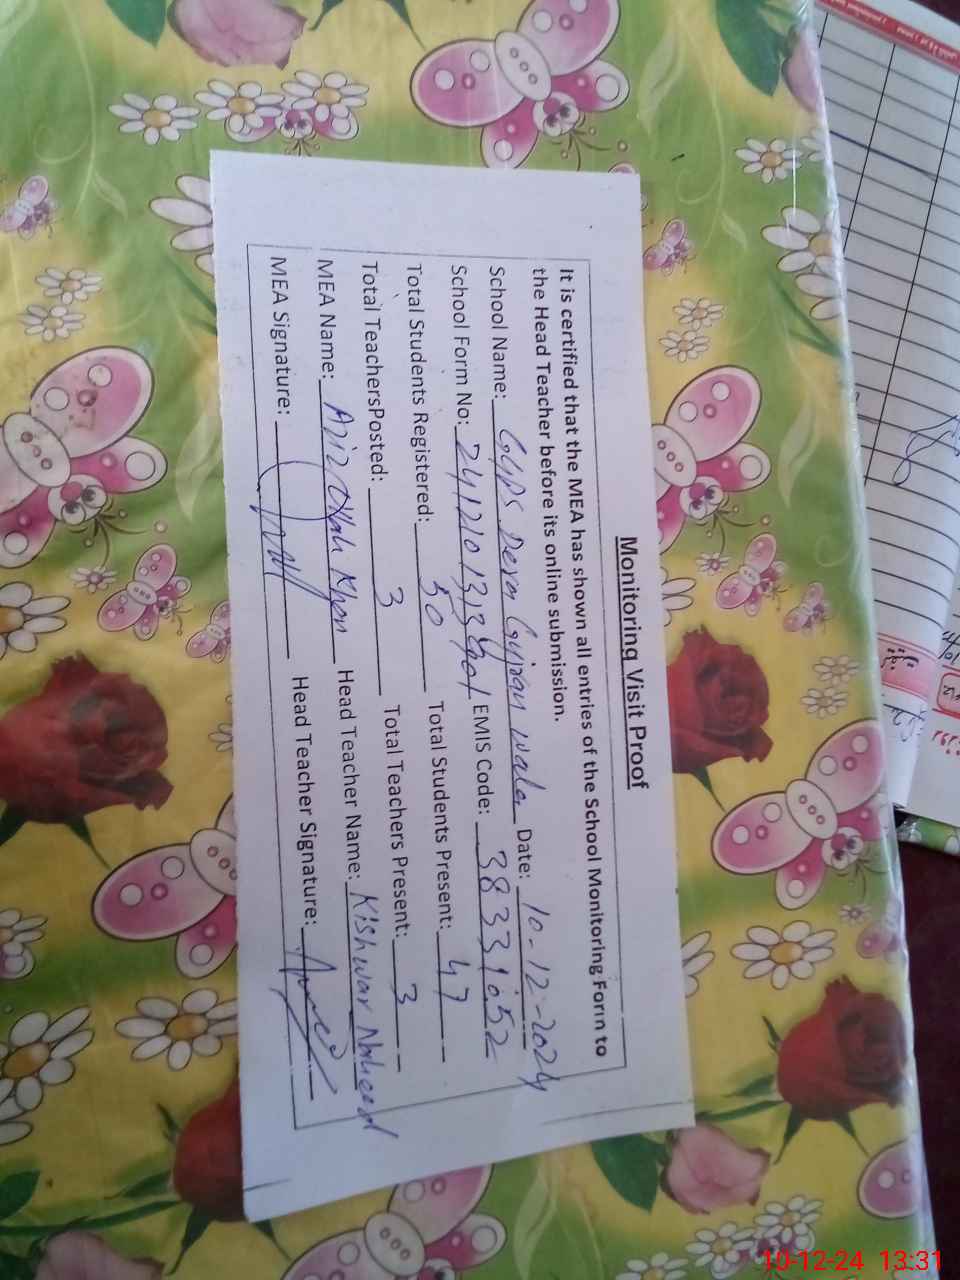 Monitoring Visit Proof
It is certified that the MEA has shown all entries of the School Monitoring Form to
the Head Teacher before its online submission.
School Name: GGPS Dera Gujran Wala Date: 10-12-2024
School Form No: EMIS Code: 38331052
Total Students Registered: 50 Total Students Present: 47
Total TeachersPosted: 3 Total Teachers Present: 3
MEA Name: Aziz Ullah Khan Head Teacher Name: Kishwar Naheed
MEA Signature: Head Teacher Signature:
10-12-24 13:31